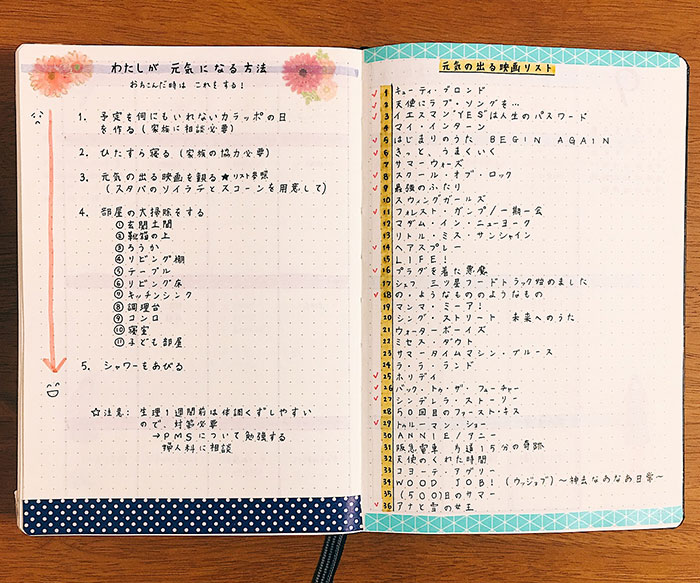 わたしが 元気になる方法
おちこんだ時は これをする!
1. 予定を何にもいれないカラッポの日
を作る(家族に相談必要)
2. ひたすら寝る(家族の協力必要)
3. 元気の出る映画を観る★リスト参照
(スタバのソイラテとスコーンを用意して)
4. 部屋の大掃除をする
①玄関土間
②靴箱の上
③ろうか
④リビング棚
⑤テーブル
⑥リビング床
⑦キッチンシンク
⑧調理台
⑨コンロ
⑩寝室
⑪子ども部屋
5. シャワーをあびる
☆注意: 生理1週間前は体調くずしやすい
ので、対策必要
→PMSについて勉強する
婦人科に相談
元気の出る映画リスト
1 キューティ・ブロンド
2 天使にラブ・ソングを…
3 イエスマン"YES"は人生のパスワード
4 マイ・インターン
5 はじまりのうた BEGIN AGAIN
6 きっと、うまくいく
7 サマーウォーズ
8 スクール・オブ・ロック
9 最強のふたり
10 スウィングガールズ
11 フォレスト・ガンプ/一期一会
12 マダム・イン・ニューヨーク
13 リトル・ミス・サンシャイン
14 ヘアスプレー
15 LIFE!
16 プラダを着た悪魔
17 シェフ 三ツ星フードトラック始めました
18 の・ようなもののようなもの
19 マンマ・ミーア!
20 シング・ストリート 未来へのうた
21 ウォーターボーイズ
22 ミセス・ダウト
23 サマータイムマシン・ブルース
24 ラ・ラ・ランド
25 ホリデイ
26 バック・トゥ・ザ・フューチャー
27 シンデレラ・ストーリー
28 50回目のファースト・キス
29 トゥルーマン・ショー
30 ANNIE/アニー
31 阪急電車 片道15分の奇跡
32 天使のくれた時間
33 コヨーテ・アグリー
34 WOOD JOB!(ウッジョブ)〜神去なあなあ日常〜
35 (500)日のサマー
36 アナと雪の女王